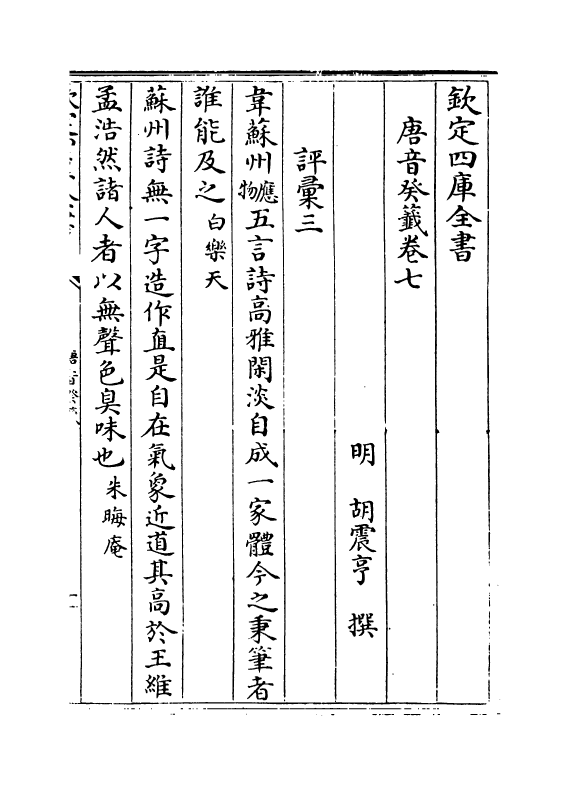 欽定四庫全書
唐音癸籖卷七
明　胡震亨　撰
評彚三
韋蘇州應物五言詩高雅閑淡自成一家體今之秉筆者
誰能及之白樂天
蘇州詩無一字造作直是自在氣象近道其高於王維
孟浩然諸人者以無聲色臭味也朱晦庵